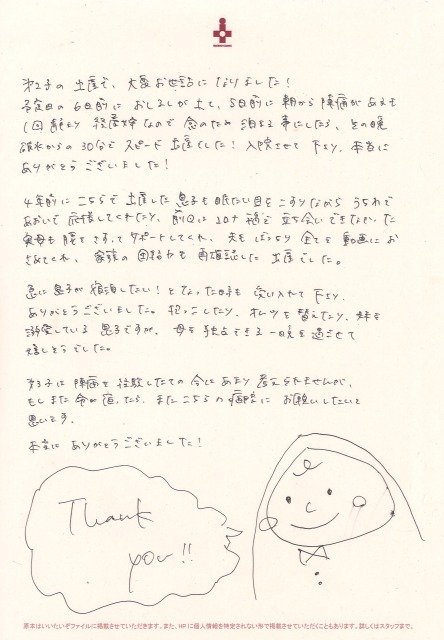 第2子の出産で、大変お世話になりました!
予定日の6日前におしるしが出て、5日前に朝から陣痛があるも
1回静まり 経産婦なので 念のため 泊まる事にしたら、その晩
破水からの30分でスピード出産でした! 入院させて下さり、本当に
ありがとうございました!
4年前にこちらで出産した息子も眠たい目をこすりながら うちわで
あおいで応援してくれたり、前回コロナ禍で立ち会いできなかった
実母も腰をさすってサポートしてくれ、夫もばっちり全てを動画にお
さめてくれ、家族の団結力を再確認した出産でした。
急に息子が宿泊したい!となった日も受け入れて下さり、
ありがとうございました。抱っこしたり、オムツを替えたり、妹を
溺愛している息子ですが、母を独占できる一晩を過ごせて
嬉しそうでした。
第3子は陣痛を経験したての今はあまり考えられませんが、
もしまた命が宿ったら、またこちらの病院にお願いしたいと
思います。
本当にありがとうございました!
Thank
you!!
原本はいいたいぞファイルに掲載させていただきます。また、HPに個人情報を特定されない形で掲載させていただくこともあります。詳しくはスタッフまで。